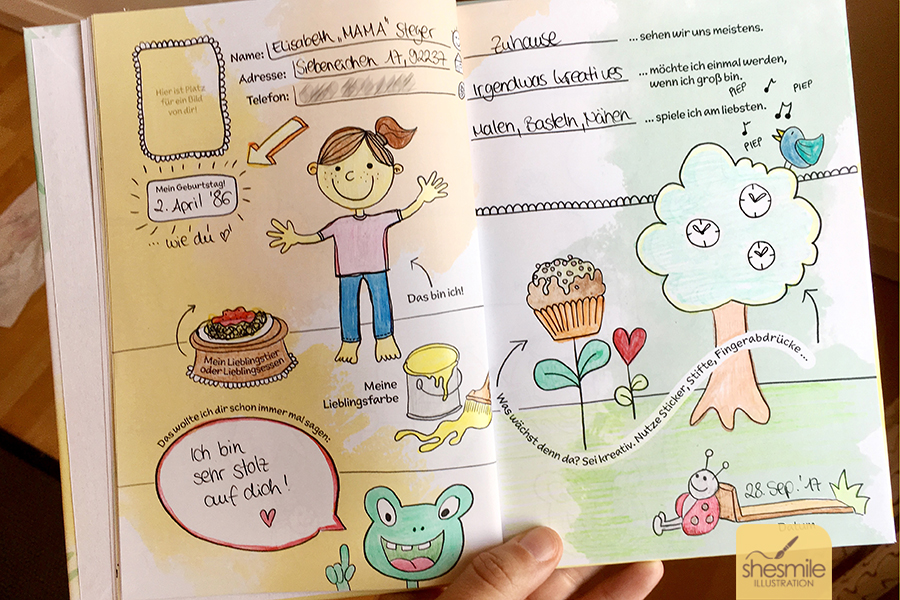 Name: Elisabeth „MAMA“ Steger
Adresse: Siebeneichen 17, 92237
Telefon:
Hier ist Platz
für ein Bild
von dir!
Mein Geburtstag!
2. April '86
... wie du ♡!
Das bin ich!
Mein Lieblingstier
oder Lieblingsessen
Meine
Lieblingsfarbe
Das wollte ich dir schon immer mal sagen:
Ich bin
sehr stolz
auf dich!
Zuhause ... sehen wir uns meistens.
Irgendwas kreatives ... möchte ich einmal werden,
wenn ich groß bin.
Malen, Basteln, Nähen ... spiele ich am liebsten.
PIEP
PIEP
PIEP
Was wächst denn da? Sei kreativ. Nutze Sticker, Stifte, Fingerabdrücke ...
28. Sep. '17
Datum
shesmile
ILLUSTRATION